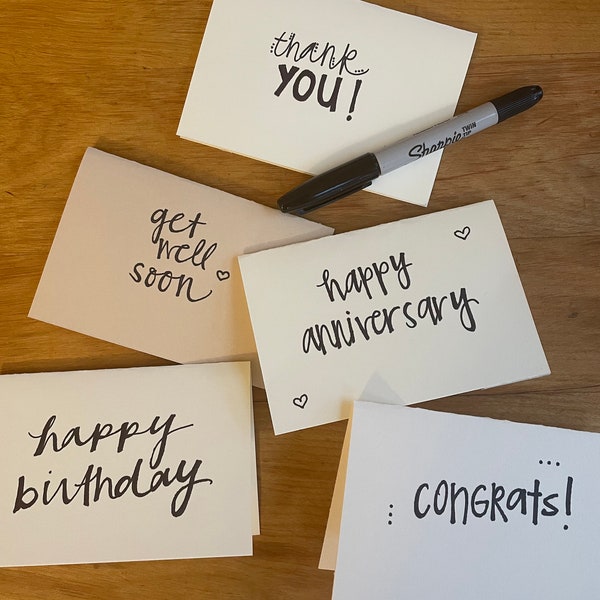 thank
YOU!
Sharpie
TWIN
TIP
get
well
soon
happy
anniversary
happy
birthday
congrats!